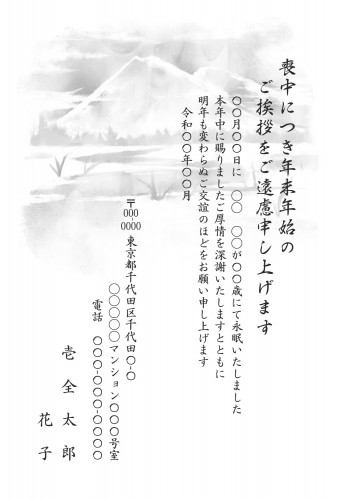 喪中につき年末年始の
ご挨拶をご遠慮申し上げます
〇〇月〇〇日に 〇〇 〇〇が〇〇歳にて永眠いたしました
本年中に賜りましたご厚情を深謝いたしますとともに
明年も変わらぬご交誼のほどをお願い申し上げます
令和〇〇年〇〇月
〒000-0000 東京都千代田区千代田〇-〇
〇〇〇〇〇マンション〇〇〇号室
電話 〇〇〇-〇〇〇-〇〇〇〇
壱全太郎
花子